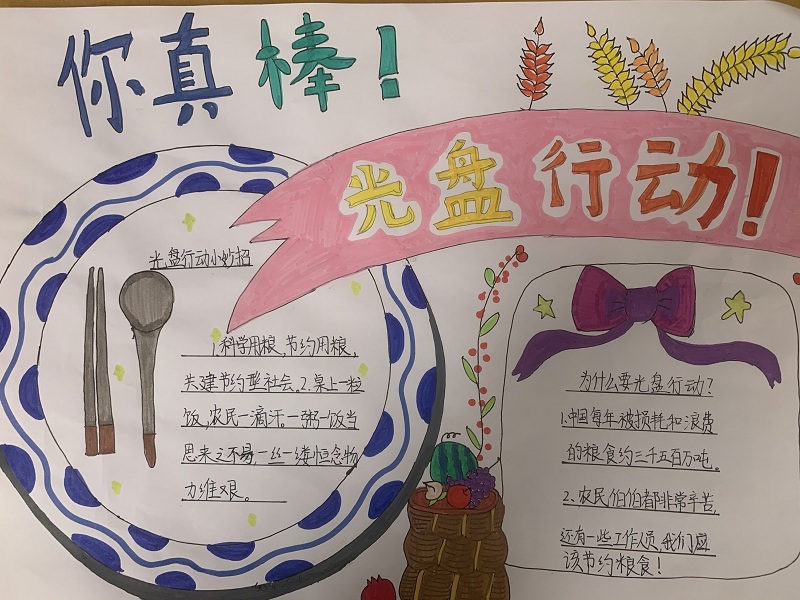 你真棒!
光盘行动!
光盘行动小妙招
1.科学用粮,节约用粮,
共建节约型社会。2.桌上一粒
饭,农民一滴汗。一粥一饭当
思来之不易,一丝一缕恒念物
力维艰。
为什么要光盘行动?
1.中国每年被损耗和浪费
的粮食约三千五百万吨。
2、农民伯伯都非常辛苦,
还有一些工作人员,我们应
该节约粮食!